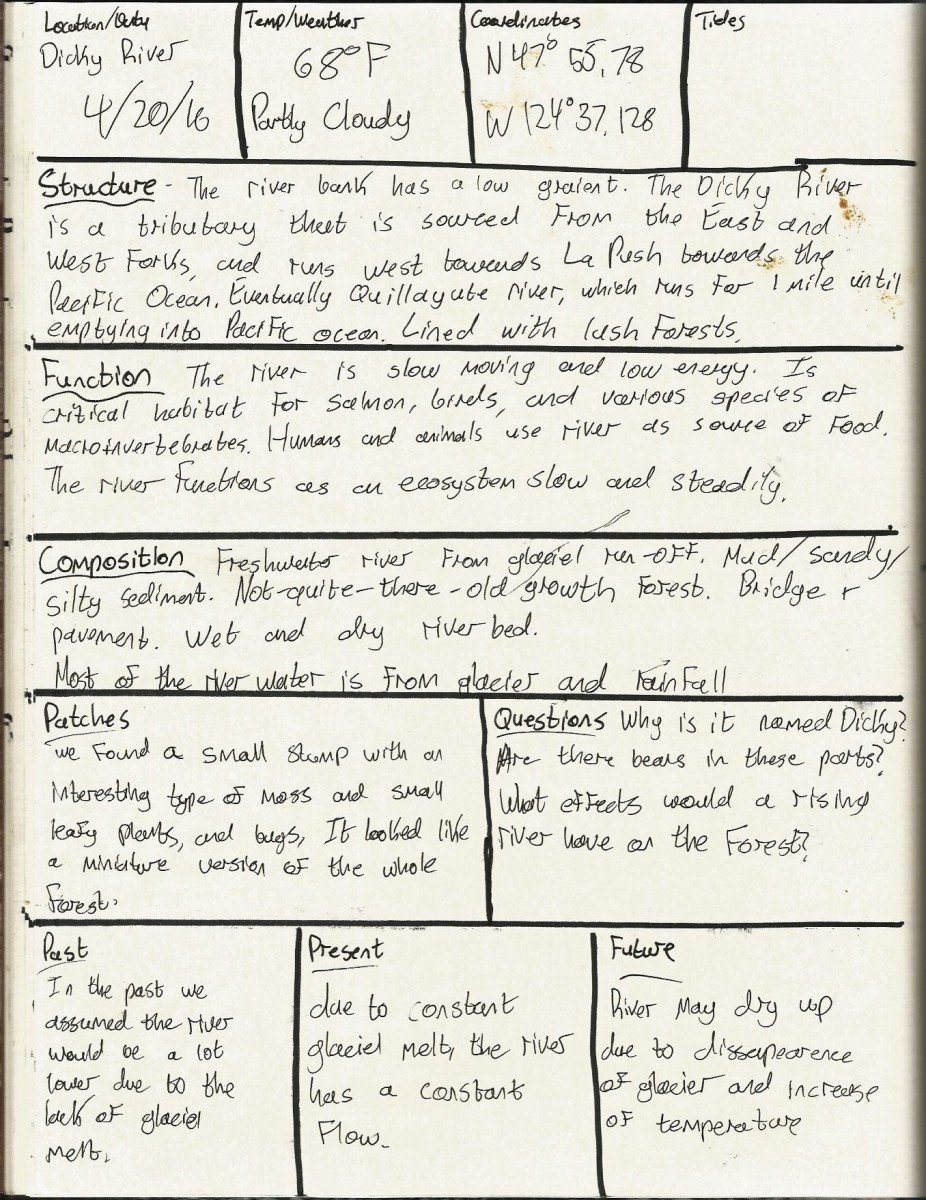 Location/Date
Dicky River
4/20/16
Temp/Weather
68°F
Partly Cloudy
Coordinates
N 47° 55.78
W 124° 37.128
Tides
Structure - The river bank has a low graient. The Dicky River
is a tributary that is sourced From the East and
West Forks, and runs west towards La Push towards the
Pacific Ocean. Eventually Quillayute river, which runs for 1 mile until
emptying into Pacific ocean. Lined with lush Forests.
Function The river is slow moving and low energy. Is
critical habitat for salmon, birds, and various species of
macroinvertebrates. Humans and animals use river as source of Food.
The river functions as an ecosystem slow and steadily.
Composition Freshwater river From glaciel run-off. Mud/sandy/
silty sediment. Not-quite-there-old growth Forest. Bridge +
pavement. Wet and dry river bed.
Most of the river water is From glacier and rainfall
Patches
we Found a small stump with an
interesting type of moss and small
leafy plants, and bugs, It looked like
a miniture version of the whole
Forest.
Questions Why is it named Dicky?
Are there bears in these parts?
What effects would a rising
river have on the Forest?
Past
In the past we
assumed the river
would be a lot
lower due to the
lack of glaciel
melt.
Present
due to constant
glaciel melt, the river
has a constant
Flow.
Future
River may dry up
due to dissapearence
of glacier and increase
of temperature